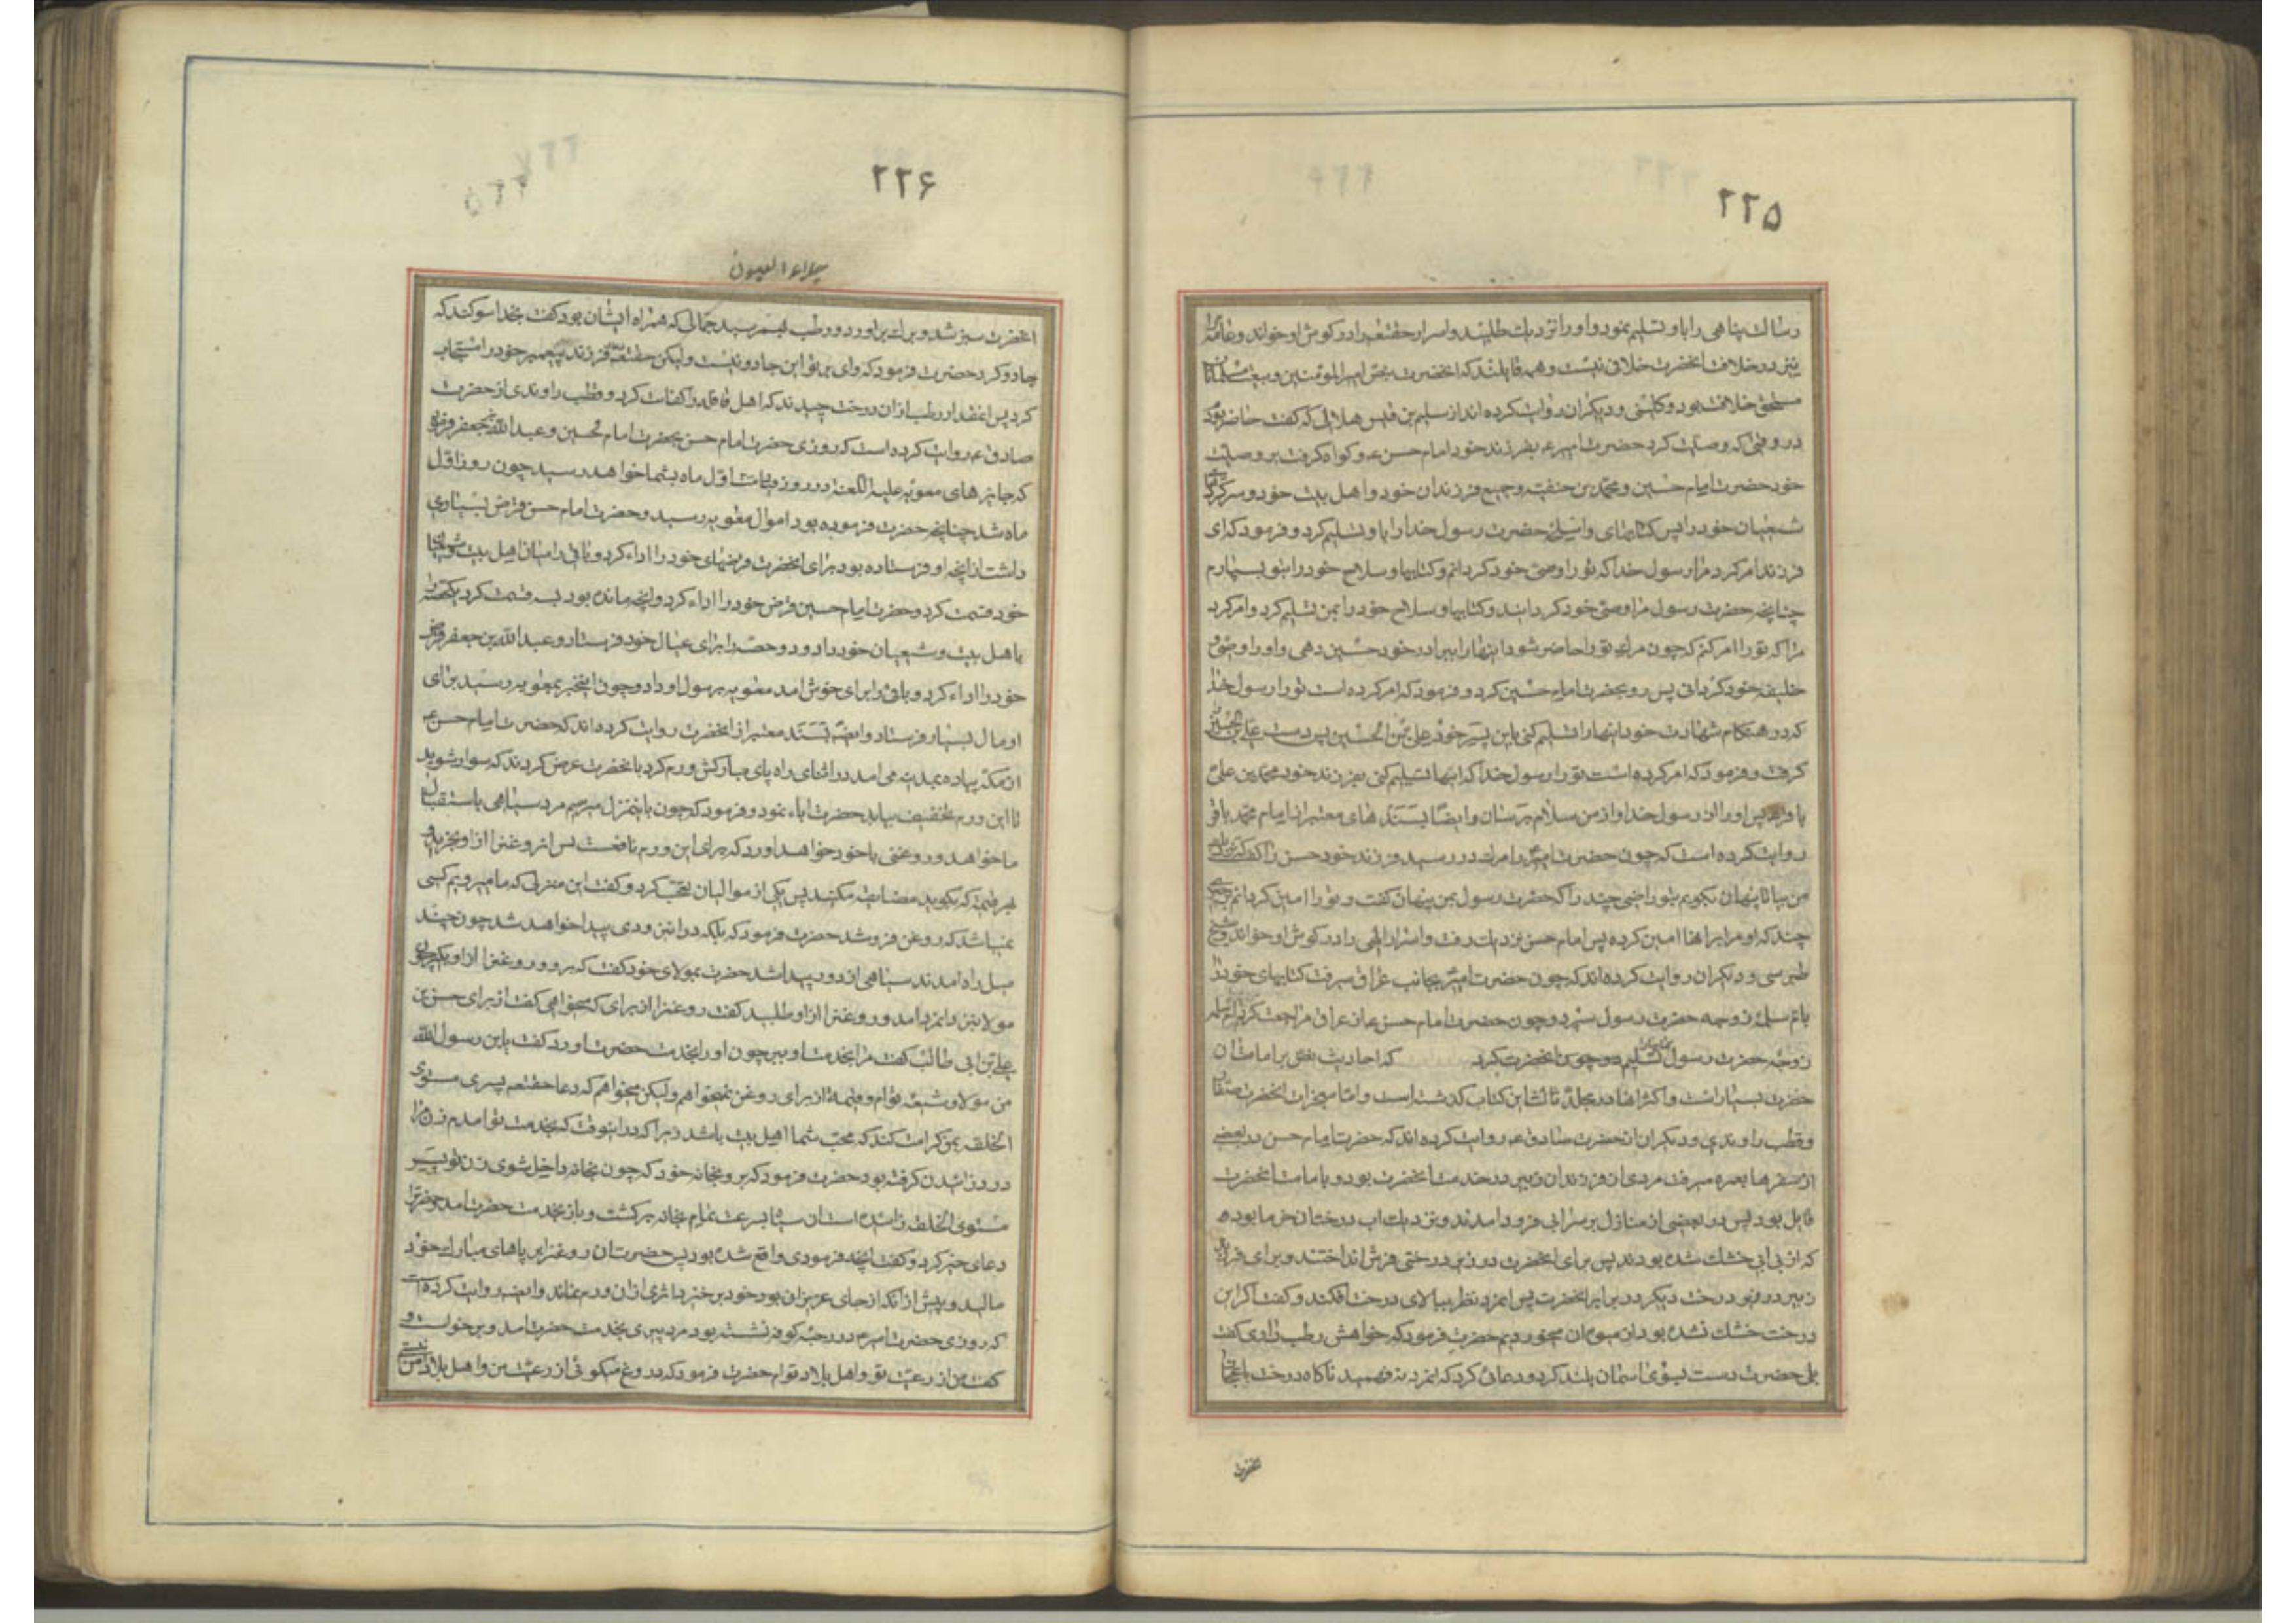 ۲۲۵
رسالت پناهی را باو تسلیم نمود و او را نزدیک طلبید و اسرار حقتعالی را در کوش او خواند و عامه
نیز در خلافت انحضرت خلافی نیست و همه قایلند که انحضرت بنص امیرالمؤمنین و بیعت مسلمانان
مستحق خلافت بود و کلینی و دیکران روایت کرده اند از سلیم بن قیس هلالی که کفت حاضر بودم
در وقتی که وصیت کرد حضرت امیر ع بفرزند خود امام حسن ع و کواه کرفت بر وصیت
خود حضرت امام حسین و محمد بن حنفیه و جمیع فرزندان خود و اهل بیت خود و سرکردهای
شیعیان خود را پس کتابهای و اسلحه حضرت رسول خدا را باو تسلیم کرد و فرمود که ای
فرزند امر کرد مرا رسول خدا که تو را وصی خود کردانم و کتابها و سلاح خود را بتو بسپارم
چنانچه حضرت رسول مرا وصی خود کردانید و کتابها و سلاح خود را بمن تسلیم کرد و امر کرد
مرا که تو را امر کنم که چون مرک تو را حاضر شود اینها را ببرادر خود حسین دهی و او را وصی و
خلیفه خود کردانی پس رو بحضرت امام حسین کرد و فرمود که امر کرده است تو را رسول خدا
که در هنکام شهادت خود اینها را تسلیم کنی باین پسر خود علی بن الحسین پس دست علی بن الحسین
کرفت و فرمود که امر کرده است تو را رسول خدا که اینها تسلیم کنی بفرزند خود محمد بن علی
باقر پس او را از رسول خدا و از من سلام برسان و ایضا بسند های معتبر از امام محمد باقر
روایت کرده است که چون حضرت امیر را مرک در رسید فرزند خود حسن را کفت که نزدیک
من بیا تا پنهان بکویم بتو رازی چند را که حضرت رسول بمن پنهان کفت و تو را امین کردانم بچیزی
چند که او مرا بر انها امین کرده پس امام حسن نزدیک رفت و اسرار الهی را در کوش او خواند و شیخ
طبرسی و دیکران روایت کرده اند که چون حضرت امیر بجانب عراق میرفت کتابهای خود را
بام سلمه زوجه حضرت رسول سپرد و چون حضرت امام حسن ع از عراق مراجعت کرد ام سلمه
زوجه حضرت رسول تسلیم انحضرت کرد که احادیث نص بر امامت ان
حضرت بسیار است و اکثر انها در مجلد ثالث این کتاب کذشته است و اما معجزات انحضرت صفار
و قطب راوندی و دیکران از حضرت صادق ع روایت کرده اند که حضرت امام حسن در بعضی
از سفرها بعمره میرفت مردی از فرزندان زبیر در خدمت انحضرت بود و بامامت انحضرت
قایل بود پس در بعضی از منازل بر سر ابی فرود امدند و نزدیک اب درختان خرما بوده
که از بی ابی خشک شده بودند پس برای انحضرت در زیر درختی فرش انداختند و برای فرزند
زبیر در زیر درخت دیکر در برابر انحضرت پس انمرد نظر ببالای درخت افکند و کفت اکر این
درخت خشک نشده بود از میوه ان میخوردیم حضرت فرمود که خواهش رطب داری کفت
بلی حضرت دست بسوی اسمان بلند کرد و دعائی کرد که انمرد نفهمید ناکاه درخت باعجاز
انحضرت
۲۲۶
جلاء العیون
انحضرت سبز شد و برک براورد و رطب بهم رسید جمالی که همراه ایشان بود کفت بخدا سوکند که
جادو کرد حضرت فرمود که وای بر تو این جادو نیست ولیکن حقتعالی فرزند پیغمبر خود را مستجاب
کرد پس انقدر رطب از ان درخت چیدند که اهل قافله را کفایت کرد و قطب راوندی از حضرت
صادق ع روایت کرده است که روزی حضرت امام حسن بحضرت امام حسین و عبدالله بن جعفر فرمود
که جایزهای معویه علیه اللعنه در روز اول ماه بشما خواهد رسید چون روز اول
ماه شد چنانچه حضرت فرموده بود اموال معویه رسید و حضرت امام حسن قرض بسیاری
داشت از انچه او فرستاده بود برای انحضرت قرضهای خود را اداء کرد و باقی را میان اهل بیت و شیعیان
خود قسمت کرد و حضرت امام حسین قرض خود را اداء کرد و انچه مانده بود بسه قسمت کرد یکحصه را
باهل بیت و شیعیان خود داد و دو حصه را برای عیال خود فرستاد و عبدالله بن جعفر قرض
خود را اداء کرد و باقی را برای خوش امد معویه برسول او داد و چون اینخبر بمعویه رسید برای
او مال بسیار فرستاد و ایضا بسند معتبر از انحضرت روایت کرده اند که حضرت امام حسن ع
از مکه پیاده بمدینه می امد در اثنای راه پای مبارکش ورم کرد بانحضرت عرض کردند که سوار شوید
تا این ورم تخفیف بیابد حضرت اباء نمود و فرمود که چون باینمنزل میرسیم مرد سیاهی باستقبال
ما خواهد و روغنی با خود خواهد اورد که برای این ورم نافعست پس انروغن را از او بخرید و
هر قیمت که بکوید مضایقه مکنید پس یکی از موالیان تعجب کرد و کفت این منزلی که ما میرویم کسی
نمیباشد که روغن فروشد حضرت فرمود که بلکه در این زودی پیدا خواهد شد چون چند
میل راه امدند سیاهی از دور پیدا شد حضرت بمولای خود کفت که برو و روغن را از او بکیر چون
مولا بنزد انمرد امد و روغن را از او طلبید کفت روغن را از برای که میخواهی کفت از برای حسن بن
علی بن ابی طالب کفت مرا بخدمت او ببر چون او را بخدمت حضرت اورد کفت یابن رسول الله
من مولا و شیعه توام و قیمت از برای روغن نمیخواهم ولیکن میخواهم که دعا حقتعالی پسری مستوی
الخلقه بمن کرامت کند که محب شما اهل بیت باشد زیرا که در انوقت که بخدمت تو امدم زن مرا
درد زائیدن کرفته بود حضرت فرمود که برو بخانه خود که چون بخانه داخل شوی زن تو پسر
مستوی الخلقه زائیده است ان سیاه بسرعت تمام بخانه برکشت و باز بخدمت حضرت امد حضرترا
دعای خیر کرد و کفت انچه فرمودی واقع شده بود پس حضرت ان روغنرا بر پاهای مبارک خود
مالید و پیش از انکه از جای عریزان بود خود برخیزد اثری از ان ورم نماند و ایضا روایت کرده است
که روزی حضرت امیر ع در رحبه کوفه نشسته بود مردپیری بخدمت حضرت امد و برخواست و
کفت من از رعیت تو و اهل بلاد توام حضرت فرمود که دروغ میکوئی از رعیت من و اهل بلاد من نیستی